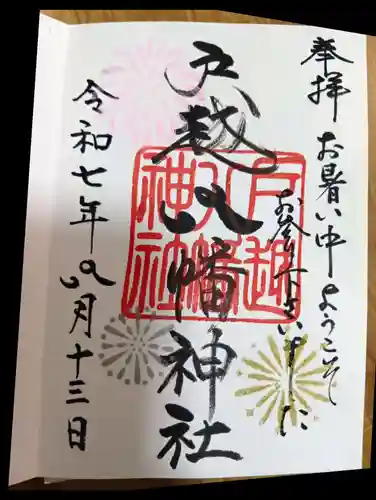 奉拝
お暑い中ようこそ
お参り下さいました
戸越八幡神社
戸越
八幡
神社
令和七年八月十三日